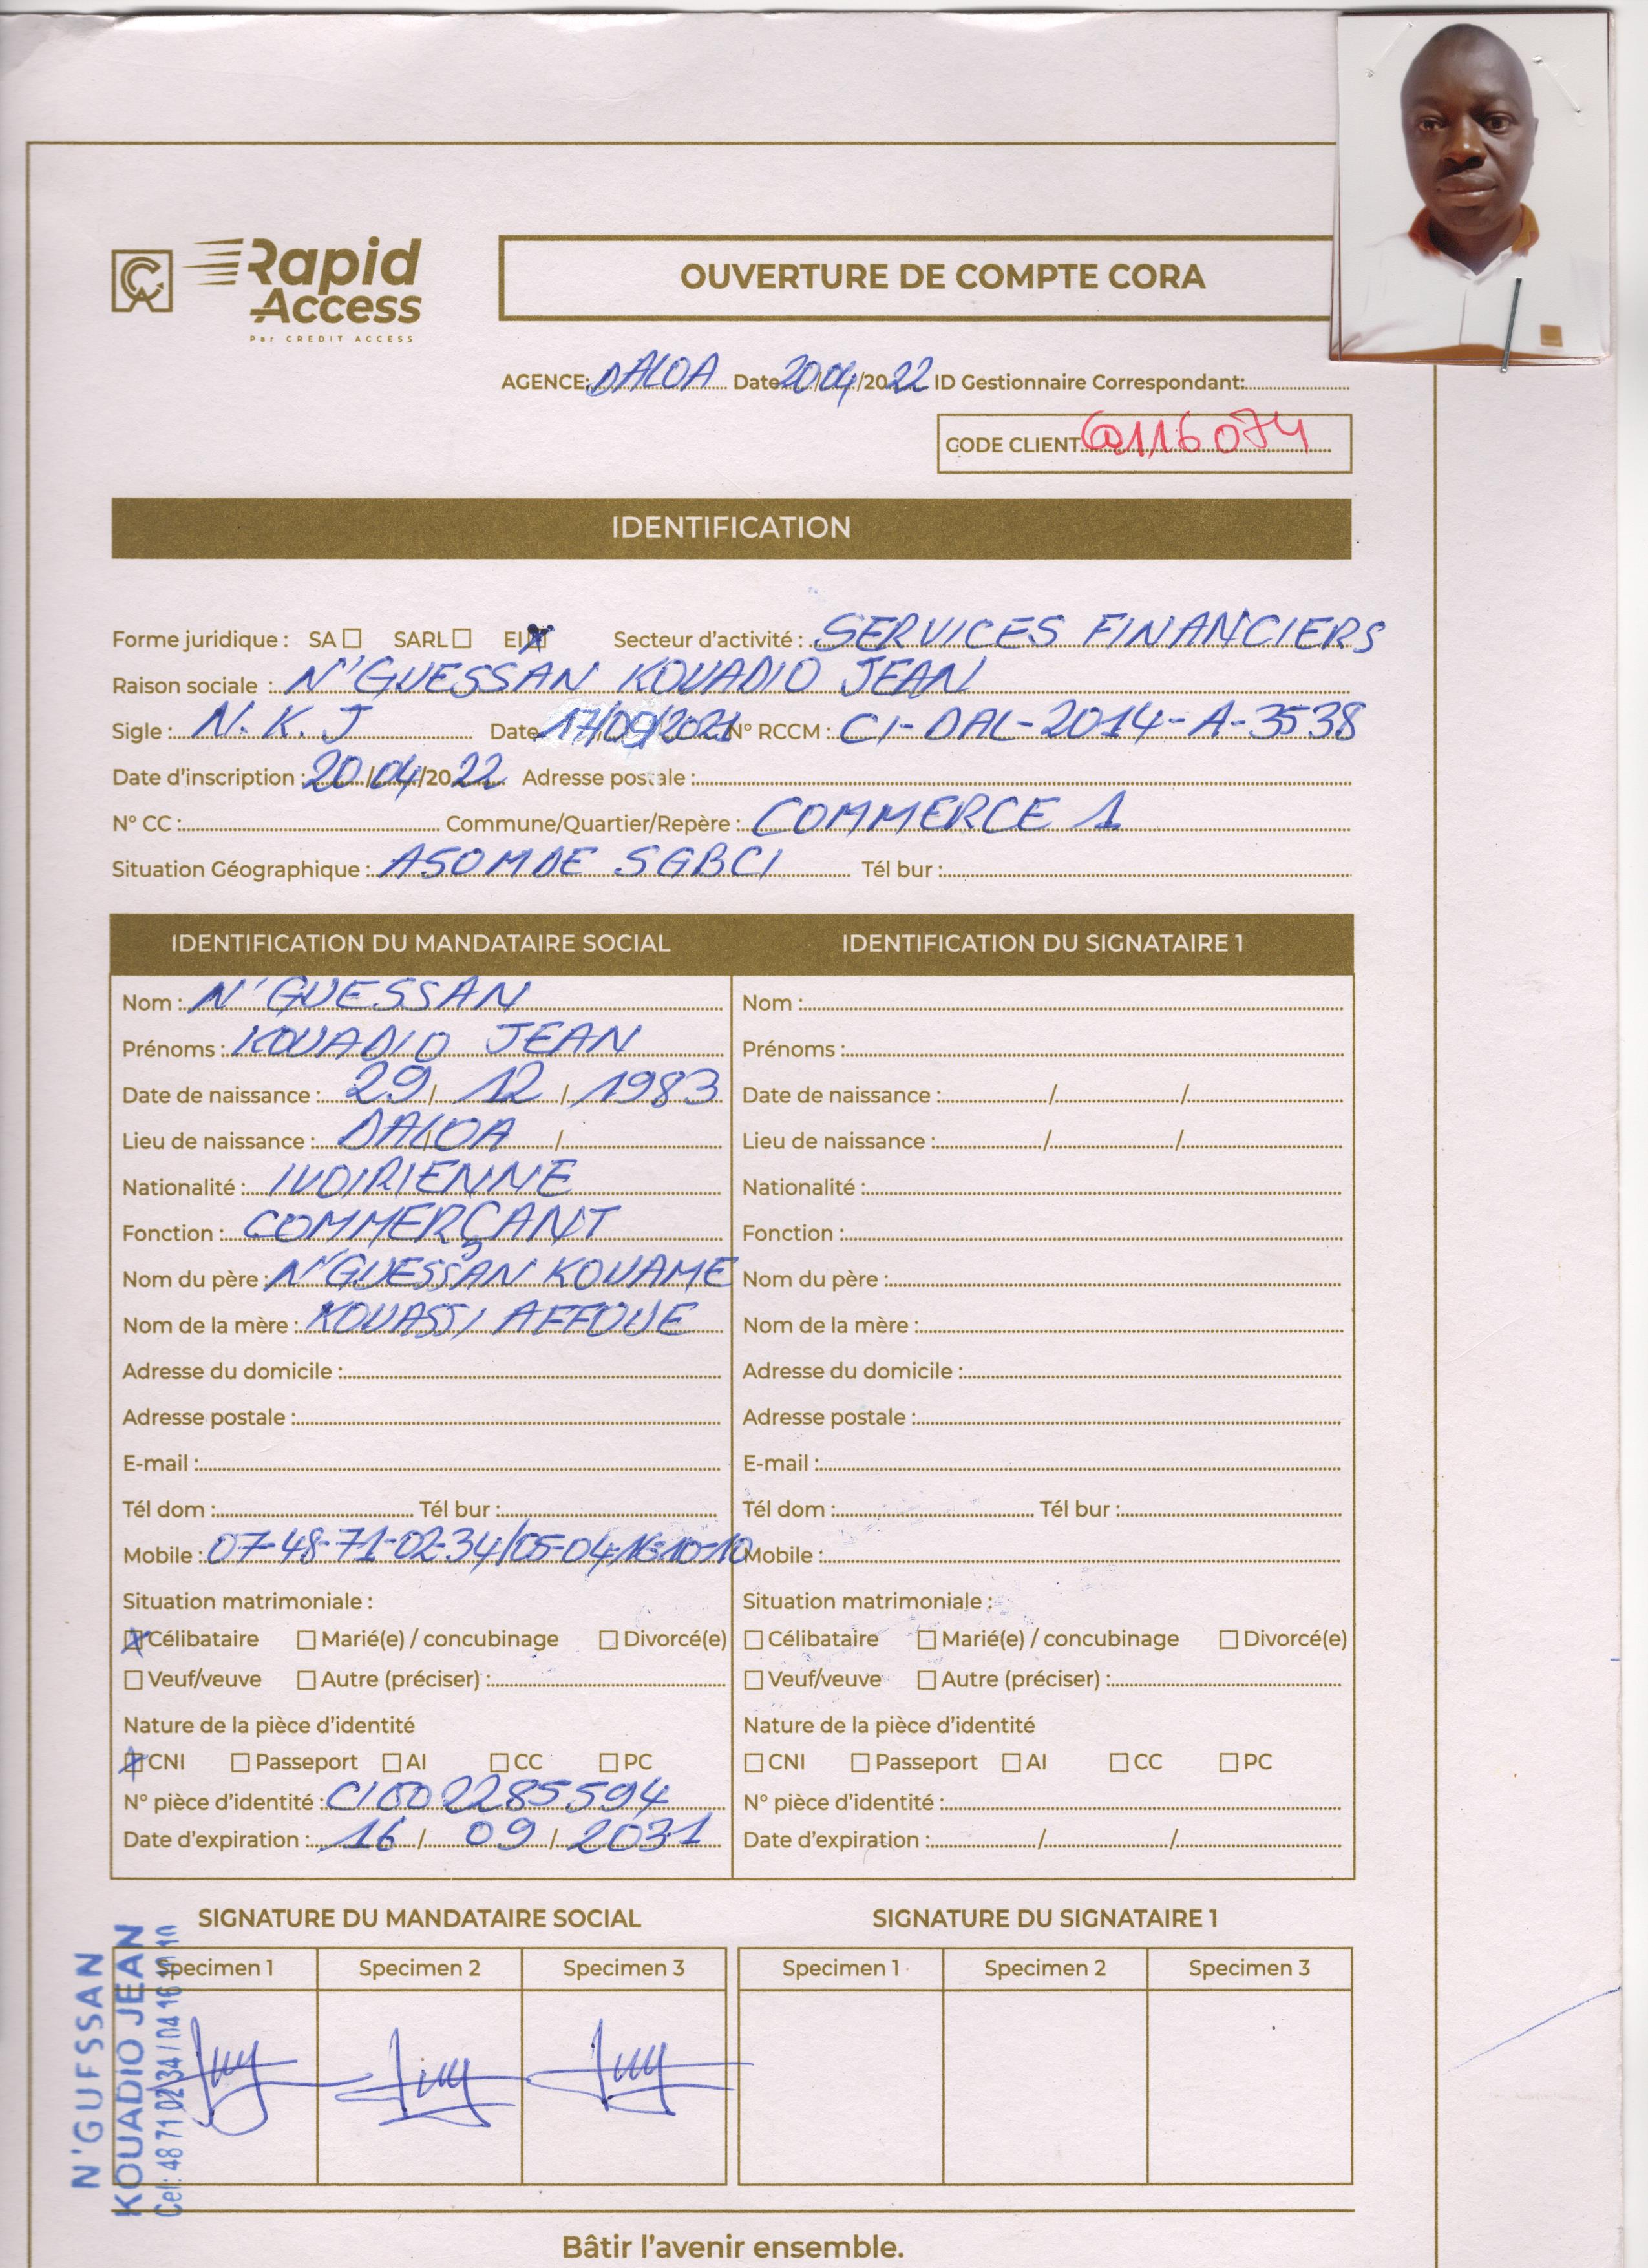 Rapid
Access
Par CREDIT ACCESS
OUVERTURE DE COMPTE CORA
AGENCE: DALOA Date 20/04/2022 ID Gestionnaire Correspondant:
CODE CLIENT @116074
IDENTIFICATION
Forme juridique : SA SARL EI Secteur d'activité : SERVICES FINANCIERS
Raison sociale : N'GUESSAN KOUADIO JEAN
Sigle : N.K.J Date 17/09/2021 N° RCCM : CI-DAL-2014-A-3538
Date d'inscription : 20/04/2022 Adresse postale :
N° CC : Commune/Quartier/Repère : COMMERCE 1
Situation Géographique : ASOMDE SGBCI Tél bur :
IDENTIFICATION DU MANDATAIRE SOCIAL
Nom : N'GUESSAN
Prénoms : KOUADIO JEAN
Date de naissance : 29/12/1983
Lieu de naissance : DALOA / /
Nationalité : IVOIRIENNE
Fonction : COMMERÇANT
Nom du père : N'GUESSAN KOUAME
Nom de la mère : KOUASSI AFFOUE
Adresse du domicile :
Adresse postale :
E-mail :
Tél dom : Tél bur :
Mobile : 07-48-71-02-34/05-04-16-10-10
Situation matrimoniale :
Célibataire Marié(e) / concubinage Divorcé(e)
Veuf/veuve Autre (préciser) :
Nature de la pièce d'identité
CNI Passeport AI CC PC
N° pièce d'identité : CI002285594
Date d'expiration : 16/09/2031
IDENTIFICATION DU SIGNATAIRE 1
Nom :
Prénoms :
Date de naissance : / /
Lieu de naissance : / /
Nationalité :
Fonction :
Nom du père :
Nom de la mère :
Adresse du domicile :
Adresse postale :
E-mail :
Tél dom : Tél bur :
Mobile :
Situation matrimoniale :
Célibataire Marié(e) / concubinage Divorcé(e)
Veuf/veuve Autre (préciser) :
Nature de la pièce d'identité
CNI Passeport AI CC PC
N° pièce d'identité :
Date d'expiration : / /
SIGNATURE DU MANDATAIRE SOCIAL
Specimen 1 Specimen 2 Specimen 3
SIGNATURE DU SIGNATAIRE 1
Specimen 1 Specimen 2 Specimen 3
N'GUESSAN
KOUADIO JEAN
Cel : 48 71 02 34 / 04 16 10 10
Bâtir l'avenir ensemble.